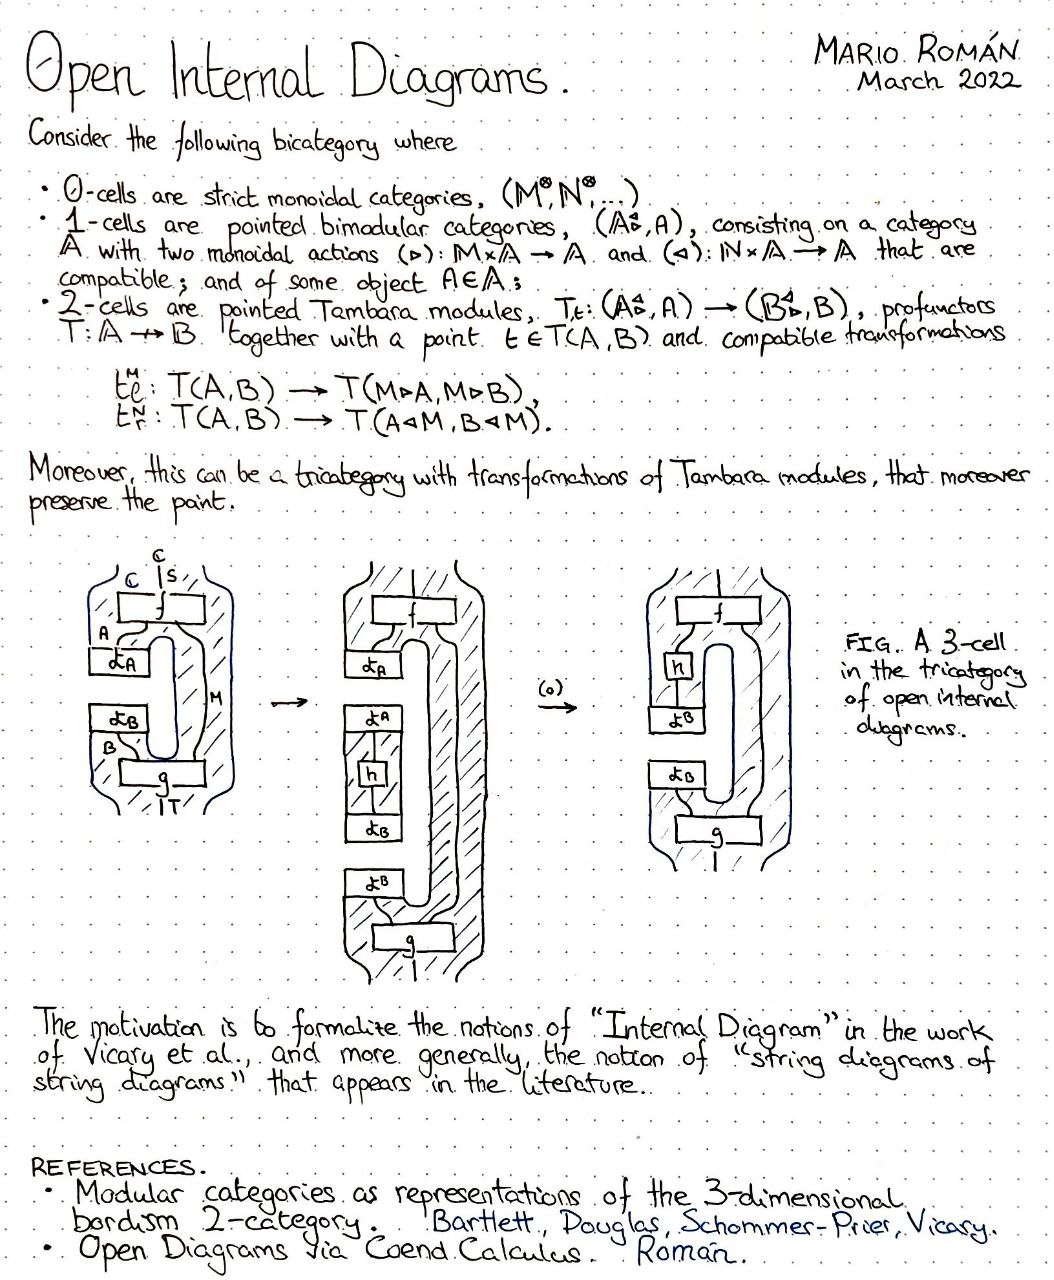 Open Internal Diagrams.
MARIO ROMÁN
March 2022
Consider the following bicategory where
• 0-cells are strict monoidal categories, (M^⊗, N^⊗, ...)
• 1-cells are pointed bimodular categories, (𝔸^◁_▷, A), consisting on a category
𝔸 with two monoidal actions (▷): 𝕄×𝔸 → 𝔸 and (◁): ℕ×𝔸 → 𝔸 that are
compatible; and of some object A∈𝔸;
• 2-cells are pointed Tambara modules, T_t: (𝔸^◁_▷, A) → (𝔹^◁_▷, B), profunctors
T: 𝔸 ⇸ 𝔹 together with a point t ∈ T(A,B) and compatible transformations
t^M_ℓ: T(A,B) → T(M▷A, M▷B),
t^N_r: T(A,B) → T(A◁M, B◁M).
Moreover, this can be a tricategory with transformations of Tambara modules, that moreover
preserve the point.
ℂ
ℂ S
f
A
よA
M
よB
B
g
T
→
f
よA
よA
h
よB
よB
g
(o)
→
f
h
よB
よB
g
FIG. A 3-cell
in the tricategory
of open internal
diagrams.
The motivation is to formalize the notions of "Internal Diagram" in the work
of Vicary et al., and more generally, the notion of "string diagrams of
string diagrams" that appears in the literature.
REFERENCES.
• Modular categories as representations of the 3-dimensional
bordism 2-category. Bartlett, Douglas, Schommer-Pries, Vicary.
• Open Diagrams via Coend Calculus. Román.